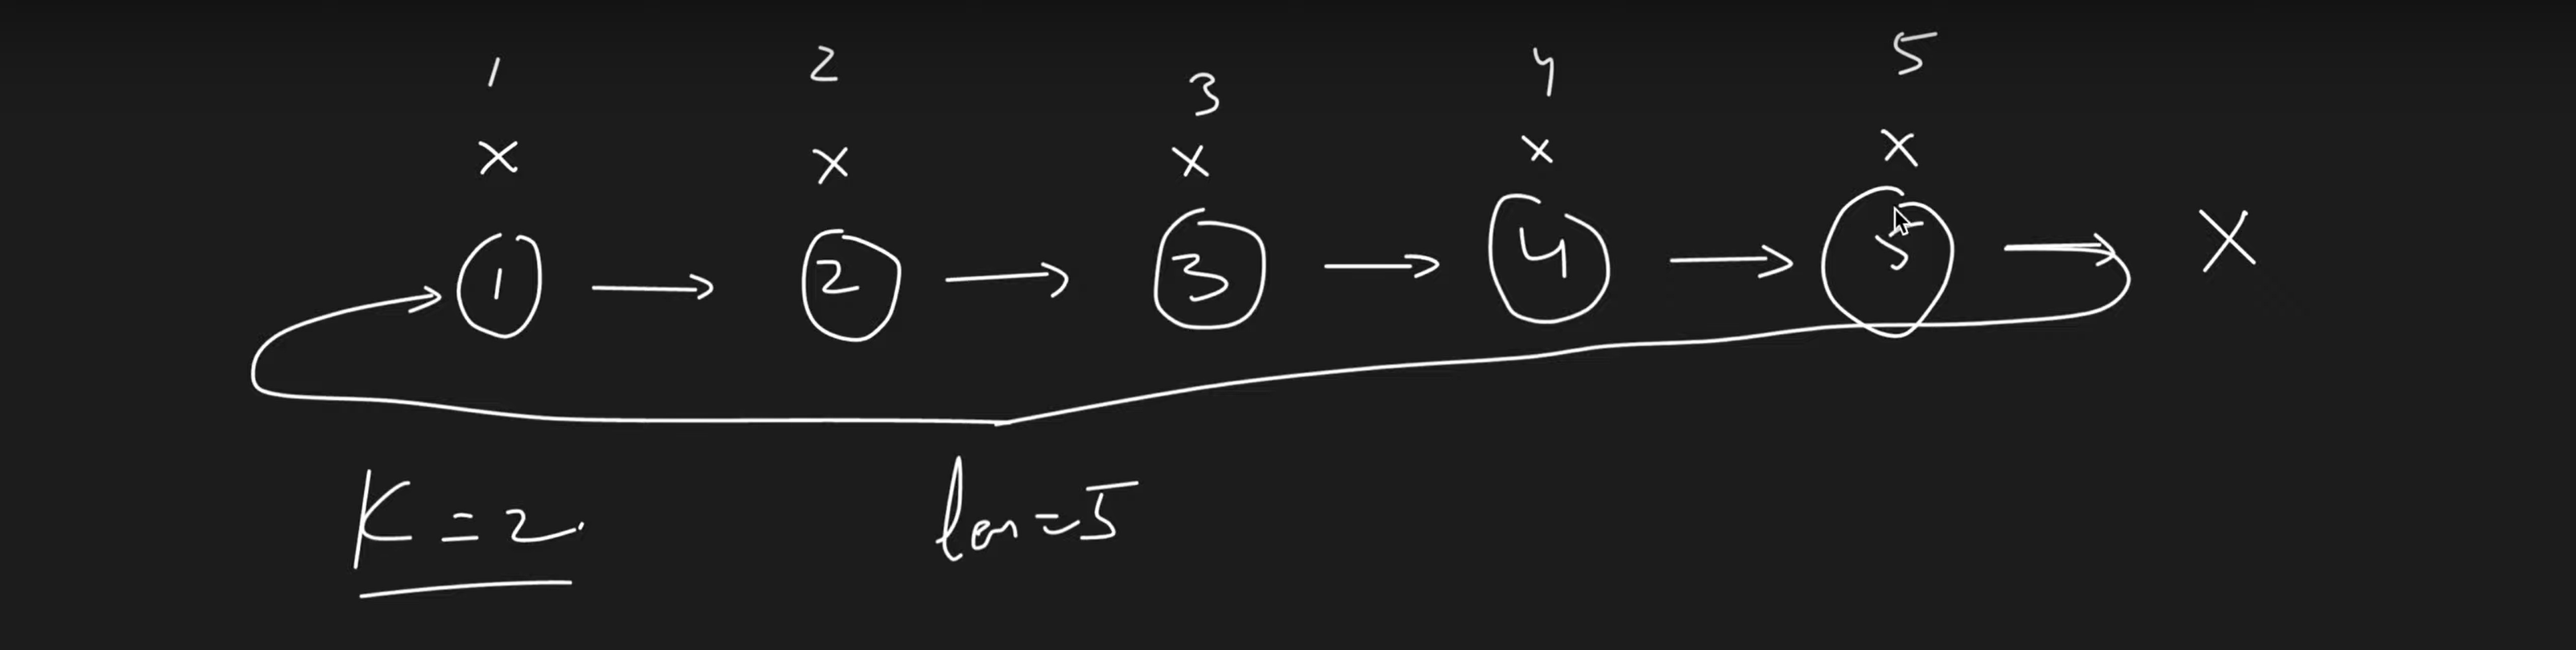 1 2 3 4 5
x x x x x
1 → 2 → 3 → 4 → 5 → X
K = 2. len = 5